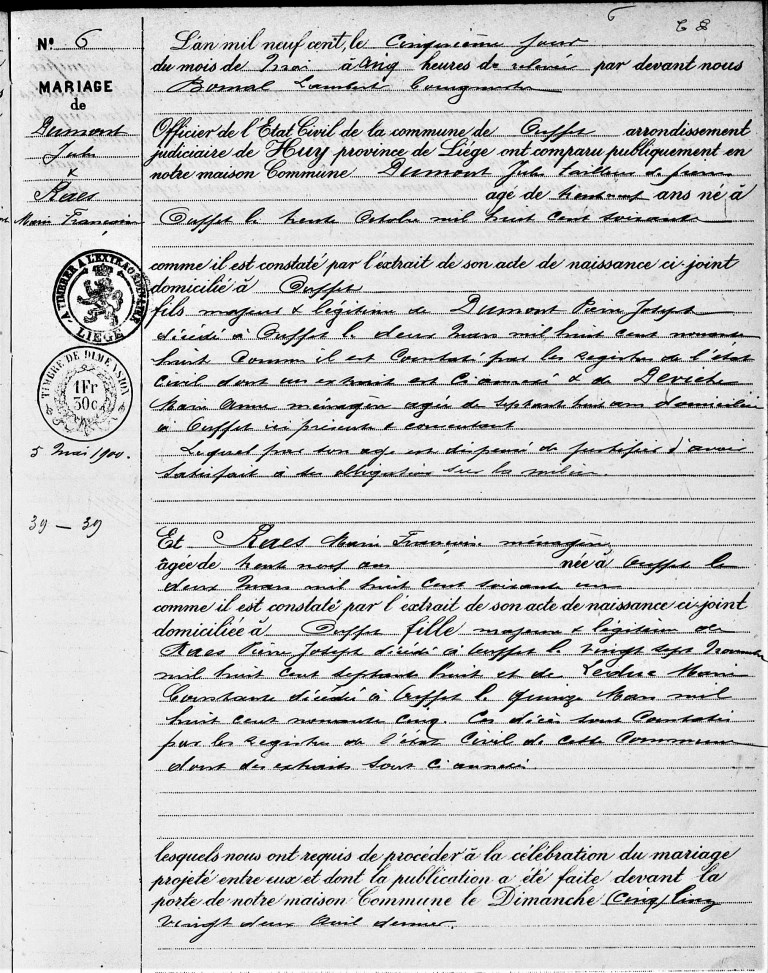 6
N° 6
MARIAGE
de
Dumont
Jules
x
Raes
Marie Françoise
A TIMBRER A L'EXTRAORDINAIRE
LIEGE
TIMBRE DE DIMENSION
1 Fr
30 c
5 Mai 1900.
39 – 39
L'an mil neuf cent, le cinquième jour
du mois de Mai à cinq heures de relevée par devant nous
Bomal Lambert Bourgmestre
Officier de l'Etat Civil de la commune de Ouffet arrondissement
judiciaire de Huy province de Liége ont comparu publiquement en
notre maison Commune Dumont Jules tailleur de pierres
agé de trente neuf ans né à
Ouffet le trente Octobre mil huit cent soixante
comme il est constaté par l'extrait de son acte de naissance ci-joint
domicilié à Ouffet
fils majeur & légitime de Dumont Pierre Joseph
décédé à Ouffet le deux Mars mil huit cent nonante
huit comme il est constaté par les registres de l'état
civil dont un extrait est ci annexé & de
Marie Anne ménagère agée de septante huit ans domiciliée
à Ouffet ici présente & consentant
Lequel par son age est dispensé de justifier d'avoir
satisfait à ses obligations sur la milice.
Et Raes Marie Françoise ménagère
agée de trente neuf ans née à Ouffet le
deux Mars mil huit cent soixante un
comme il est constaté par l'extrait de son acte de naissance ci-joint
domiciliée à Ouffet fille majeure & légitime de
Raes Pierre Joseph décédé à Ouffet le vingt sept Novembre
mil huit cent septante huit et de Leduc Marie
Constance décédée à Ouffet le quinze Mars mil
huit cent nonante cinq. Ces décès sont constatés
par les registres de l'état civil de cette Commune
dont des extraits sont ci annexés.
lesquels nous ont requis de procéder à la célébration du mariage
projeté entre eux et dont la publication a été faite devant la
porte de notre maison Commune le Dimanche
vingt deux Avril dernier.